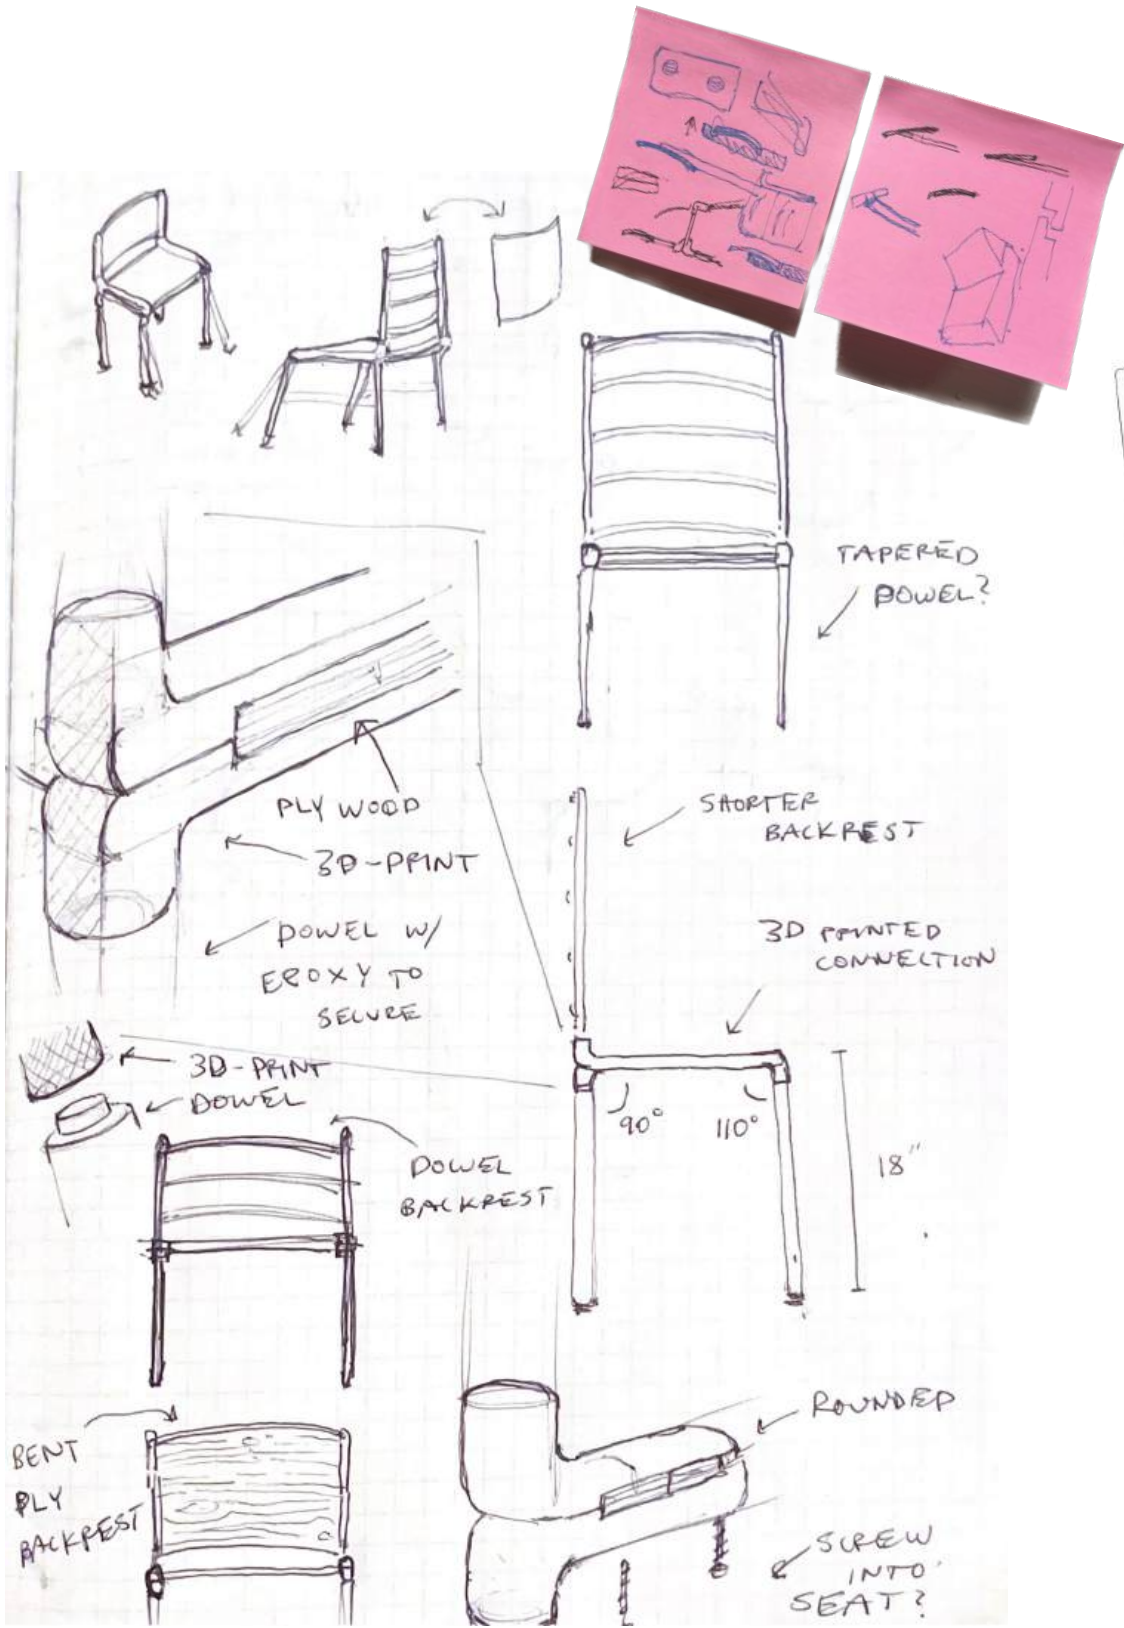 TAPERED
DOWEL?
PLY WOOD
3D-PRINT
DOWEL W/
EPOXY TO
SECURE
SHORTER
BACKREST
3D PRINTED
CONNECTION
3D-PRINT
DOWEL
DOWEL
BACKREST
90°
110°
18"
BENT
PLY
BACKREST
ROUNDED
SCREW
INTO
SEAT?